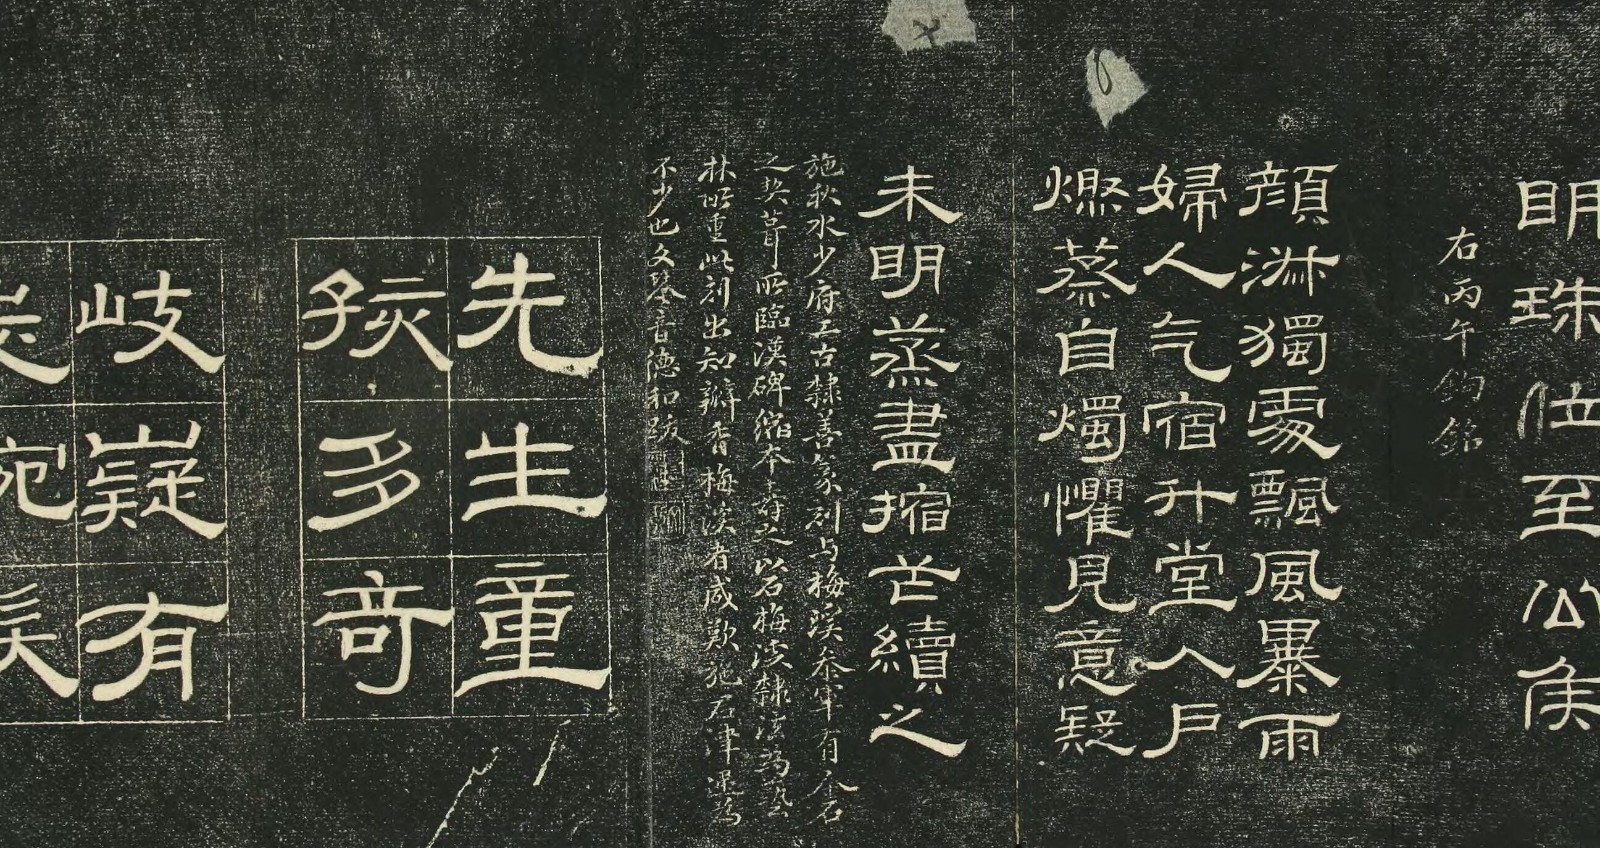 明珠位至公侯
右丙午鉤銘
顔淋獨處飄風暴雨
婦人气宿升堂入戶
燃蒸自燭懼見意疑
未明蒸盡摍芒續之
施秋水少府工古隸善篆刻与梅溪參軍有金石
之契葺所臨漢碑縮本壽之以石梅溪隸法為藝
林所重此刻出知瓣香梅溪者咸歎施君津逮為
不少也文琴音德和跋
先生童
孩多奇
岐嶷有